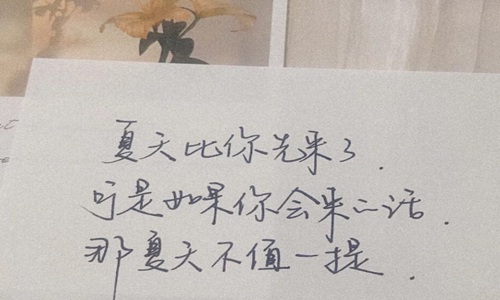 夏天比你先来了.
可是如果你会来的话.
那夏天不值一提.